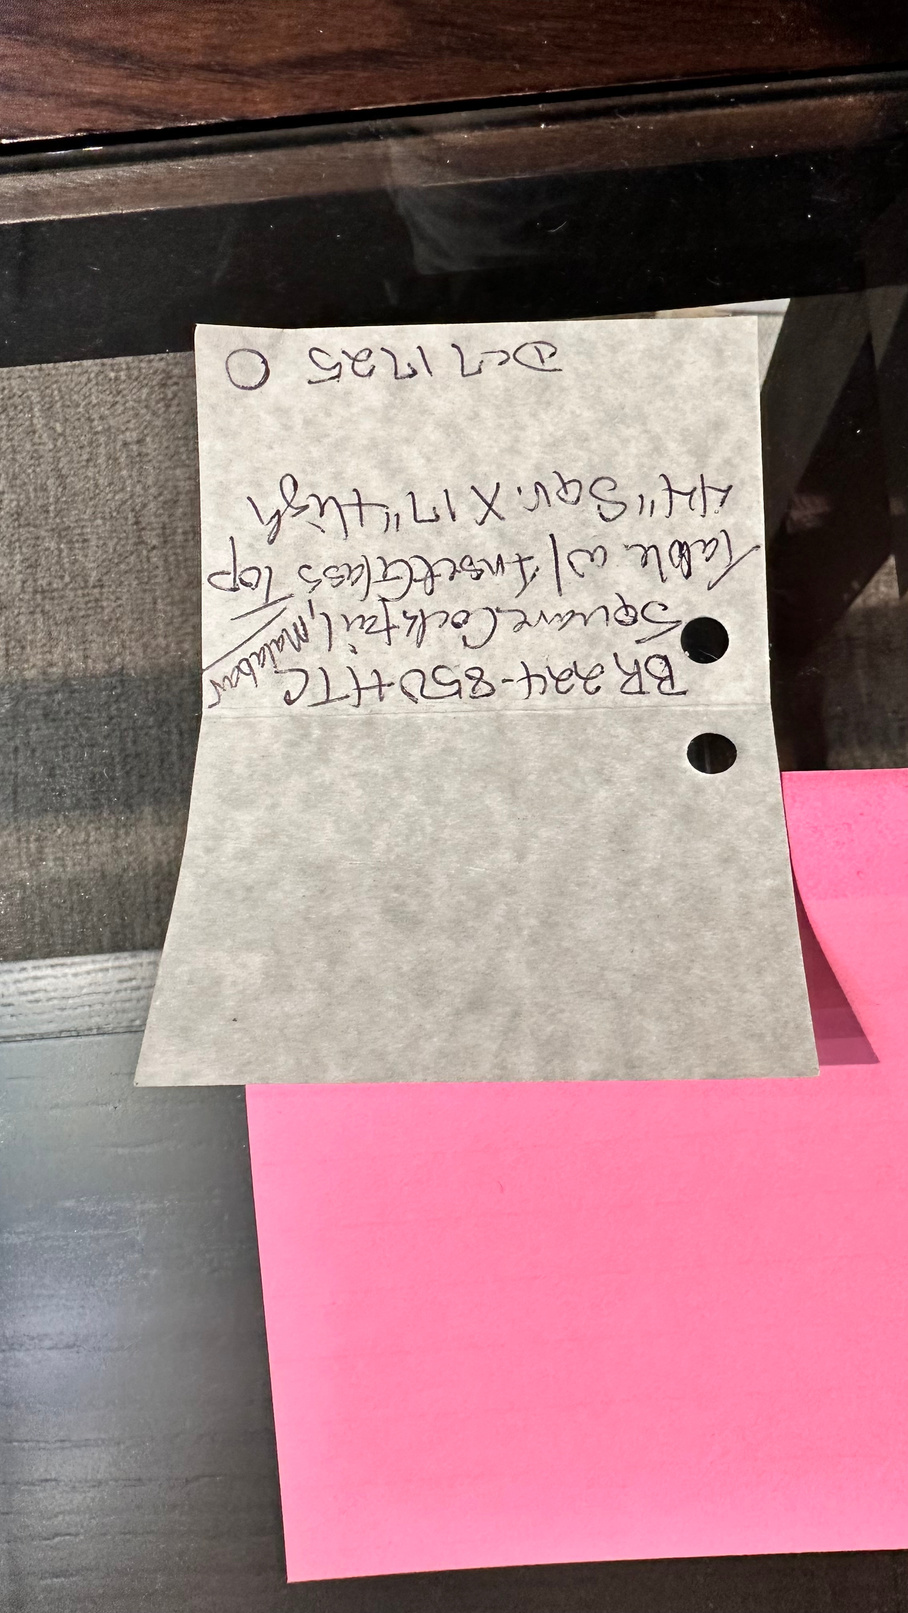 BR224-850HTC
Square Cocktail, Malabar
Table w/ Inset Glass Top
44" Sqr. X 17" High
1725 O